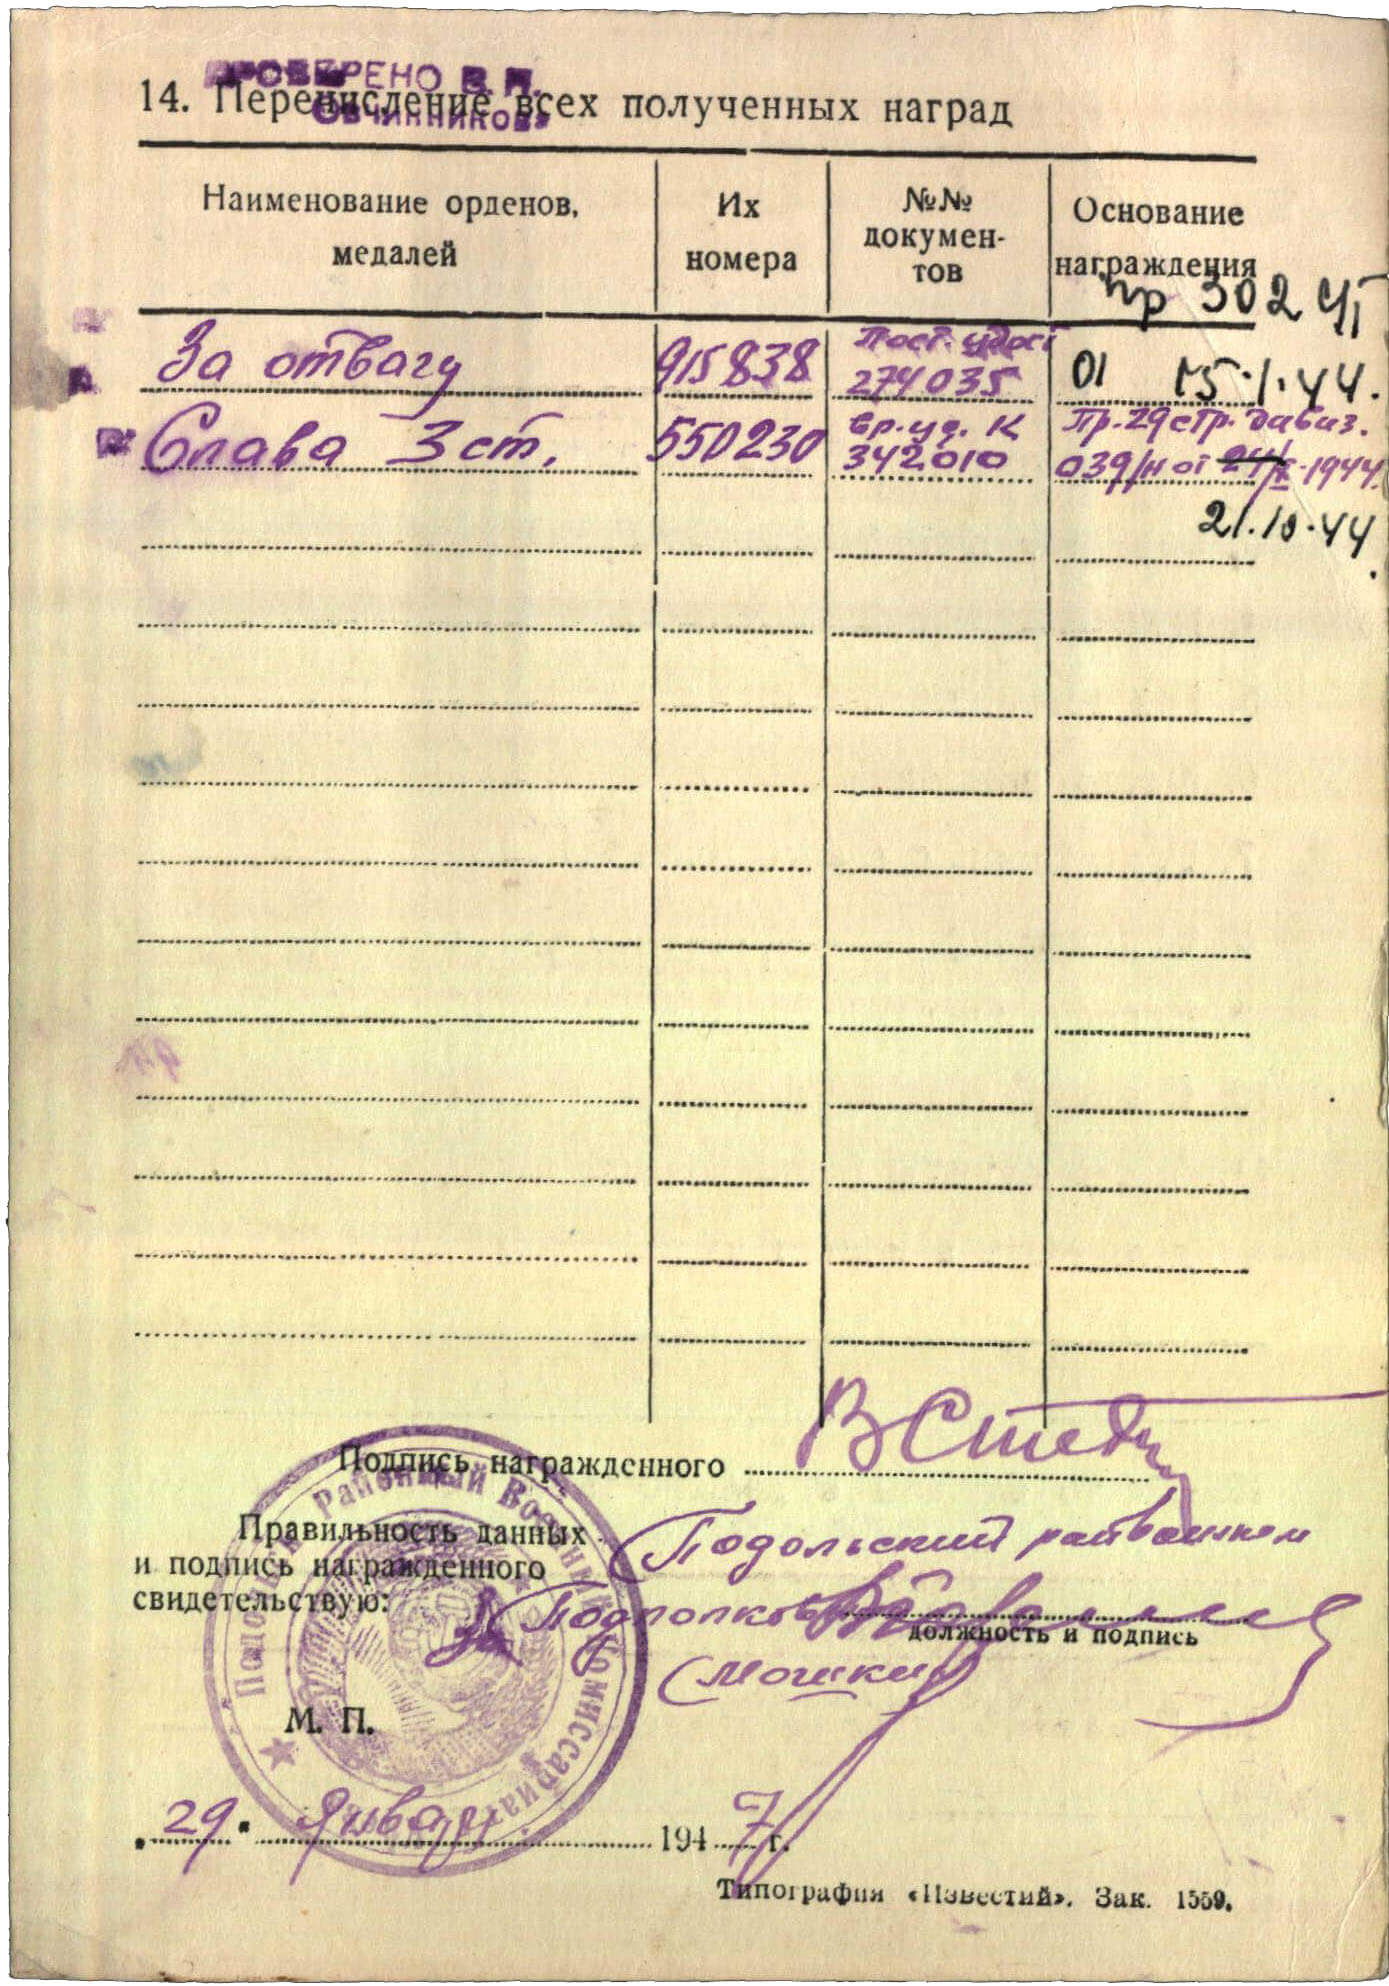 ПРОВЕРЕНО В.П.
ОВЧИННИКОВ
14. Перечисление всех полученных наград
Наименование орденов, медалей
Их номера
№№ докумен-
тов
Основание
награждения
пр 302 сп
За отвагу 915838 274035 01 15.1.44.
Слава 3 ст. 550230 вр. уд. К 342010 Пр. 29 стр. дивиз.
039/н от 1944.
21.10.44
Подпись награжденного
Правильность данных
и подпись награжденного
свидетельствую:
Подольский райвоенком
Подполковн
должность и подпись
(Мошкин)
Районный Военный Комиссариат
М. П.
29. Января 1947 г.
Типография «Известий». Зак. 1559.